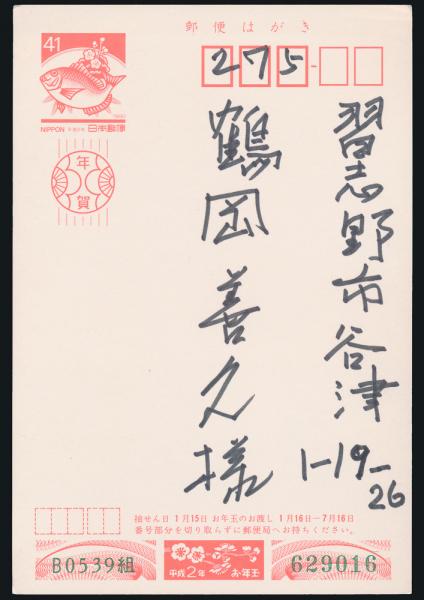 郵便はがき
41
NIPPON 平成2年 日本郵便
275-
年賀
習志野市谷津
1-19-26
鶴岡善久様
抽せん日 1月15日 お年玉のお渡し 1月16日-7月16日
番号部分を切り取らずに郵便局へお持ちください。
B0539組
平成2年 お年玉
629016